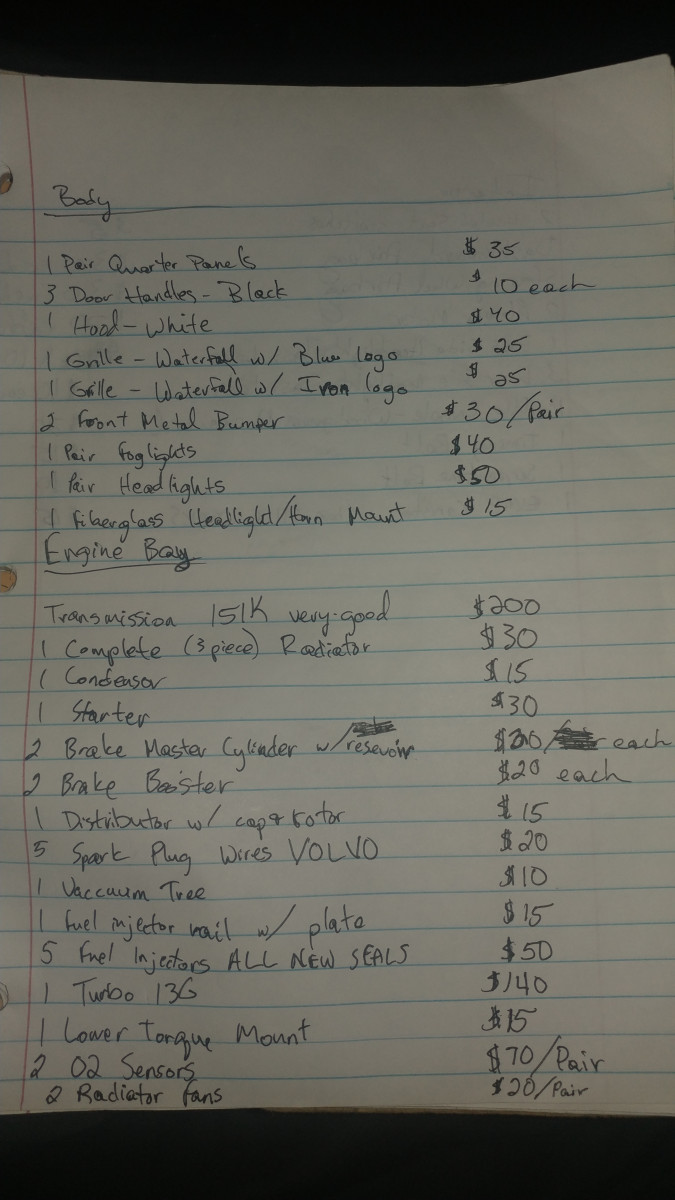 Body
1 Pair Quarter Panels $35
3 Door Handles - Black $10 each
1 Hood - White $40
1 Grille - Waterfall w/ Blue logo $25
1 Grille - Waterfall w/ Iron logo $25
2 Front Metal Bumper $30/Pair
1 Pair foglights $40
1 Pair Headlights $50
1 Fiberglass Headlight/Horn Mount $15
Engine Bay
Transmission 151K very good $200
1 Complete (3 piece) Radiator $30
1 Condensor $15
1 Starter $30
2 Brake Master Cylinder w/ resevoir each
2 Brake Booster $20 each
1 Distributor w/ cap & rotor $15
5 Spark Plug Wires VOLVO $20
1 Vaccuum Tree $10
1 fuel injector rail w/ plate $15
5 Fuel Injectors ALL NEW SEALS $50
1 Turbo 13G $140
1 Lower Torque Mount $15
2 O2 Sensors $70/Pair
2 Radiator fans $20/Pair